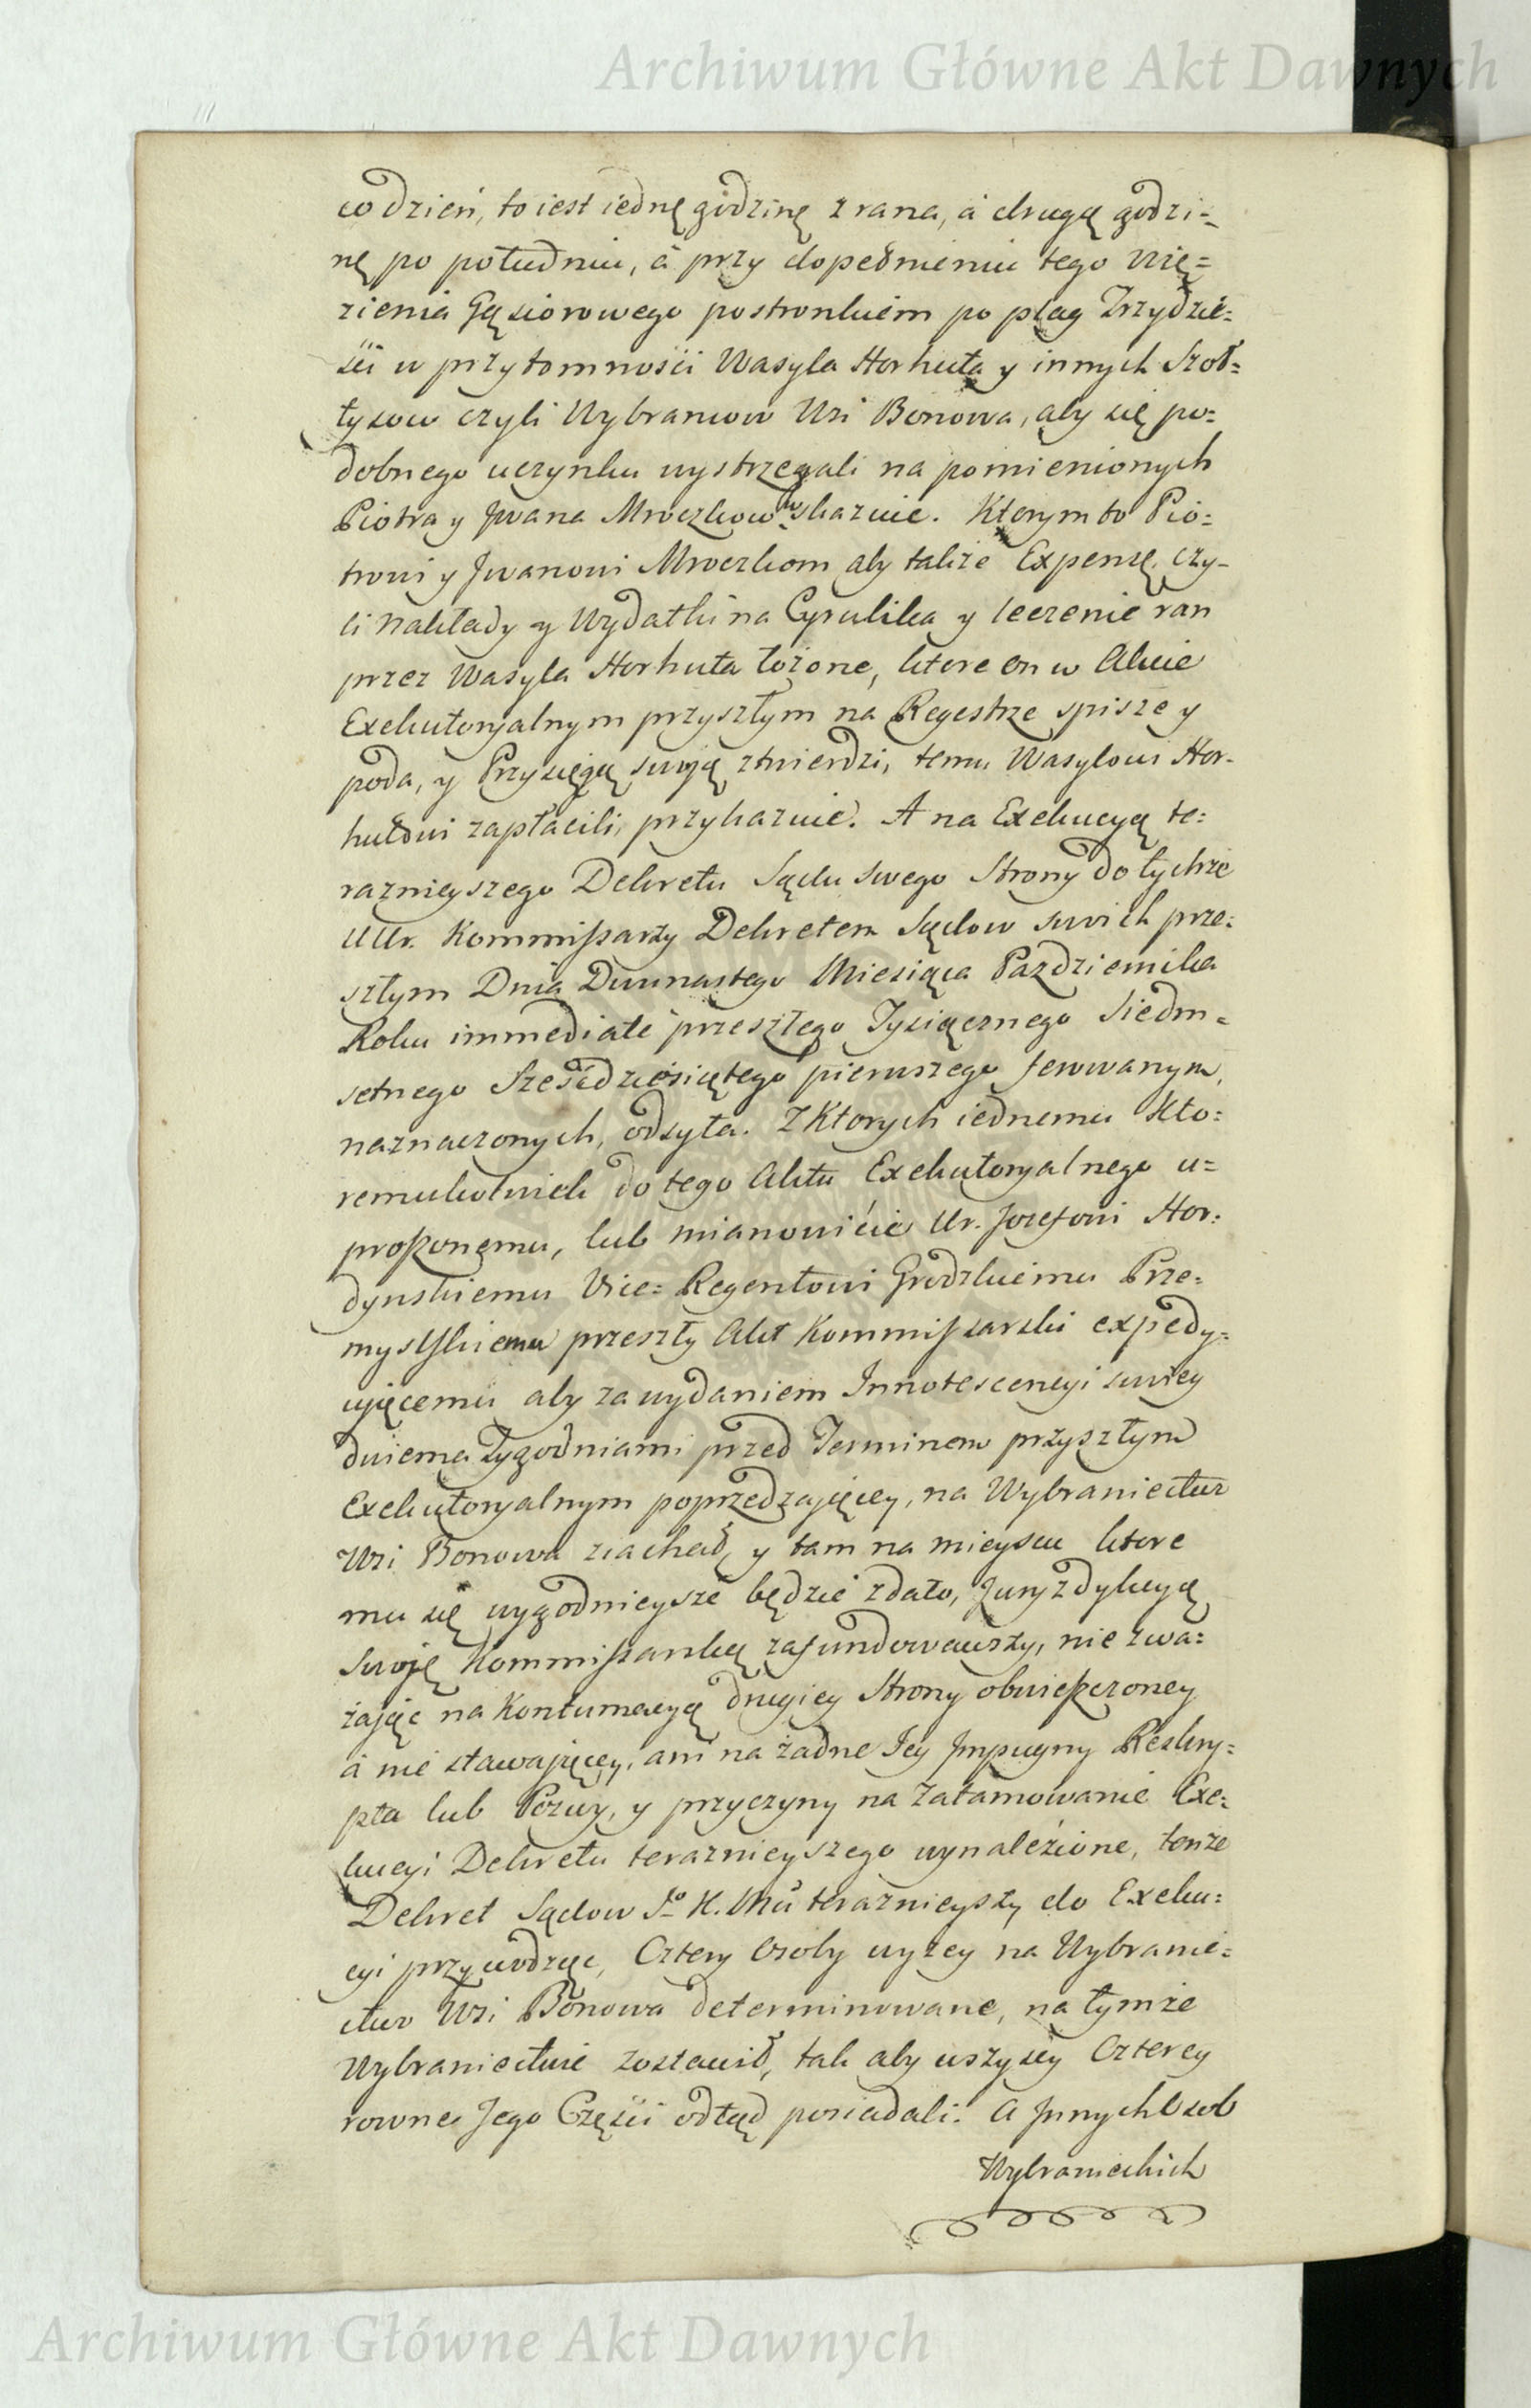 Archiwum Główne Akt Dawnych
co dzień, to iest iednę godzinę z rana, á drugą godzi=
nę po południu, á przy dopełnieniu tego więzię=
zienia Gąsiorowego postronkiem po plag Trzydzie=
ści w przytomności Wasyla Horhuta y innych Szoł=
tysow czyli Wybrancow Wsi Bonowa, aby się po=
dobnego uczynku wystrzegali na pomienionych
Piotra y Jwana Mroczkow wskazuie. Ktorym to Pio=
trowi y Jwanowi Mroczkom aby także Expensę, czy-
li nakłady y Wydatki na Cyrulika y leczenie ran
przez Wasyla Horhuta łożone, ktore on w Akcie
Exekutoryalnym przyszłym na Regestrze spisze y
poda, y Przysięgą swoją ztwierdzi, temu Wasylowi Hor-
hutowi zapłacili, przykazuie. A na Exekucyą te=
raznieyszego Dekretu Sądu swego Strony do tychże
UUr. Kommissarzy Dekretem Sądow swoich prze=
szłym Dnia Dwunastego Miesiąca Pazdziernika
Roku immediate przeszłego Tysiącznego Siedm=
setnego Sześćdziesiątego pierwszego ferowanym,
naznaczonych, odsyła. Z Ktorych iednemu Kto=
remukolwiek do tego Aktu Exekutoryalnego u=
proszonemu, lub mianowicie Ur. Jozefowi Hor=
dynskiemu Vice=Regentowi Grodzkiemu Prze=
myslskiemu przeszły Akt Kommissarski expedy=
uiącemu aby za wydaniem Innotescencyi swoiey
dwiema Tygodniami przed Terminem przyszłym
Exekutoryalnym poprzedzaiącey, na Wybraniectwo
Wsi Bonowa ziachał, y tam na mieyscu ktore
mu się wygodnieysze będzie zdało, Juryzdykcyą
Swoię Kommissarską zafundowawszy, nie zwa=
żaiąc na Kontumacyą drugiey Strony obwieszczoney
á nie stawaiącey, ani na żadne Jey Jmpugny Reskry=
pta lub Pozwy, y przyczyny na zatamowanie Exe=
kucyi Dekretu teraznieyszego wynaleźione, tenże
Dekret Sądow J<sup>o</sup> K. Mći teraznieyszy do Exeku=
cyi przywodząc, Cztery Osoby wyżey na Wybranie=
ctwo Wsi Bonowa determinowane, na tymże
Wybraniectwie zostawił, tak aby wszyscy Czterey
rowne Jego Części odtąd posiadali. A Jnnych Osob
Wybranieckich
Archiwum Główne Akt Dawnych